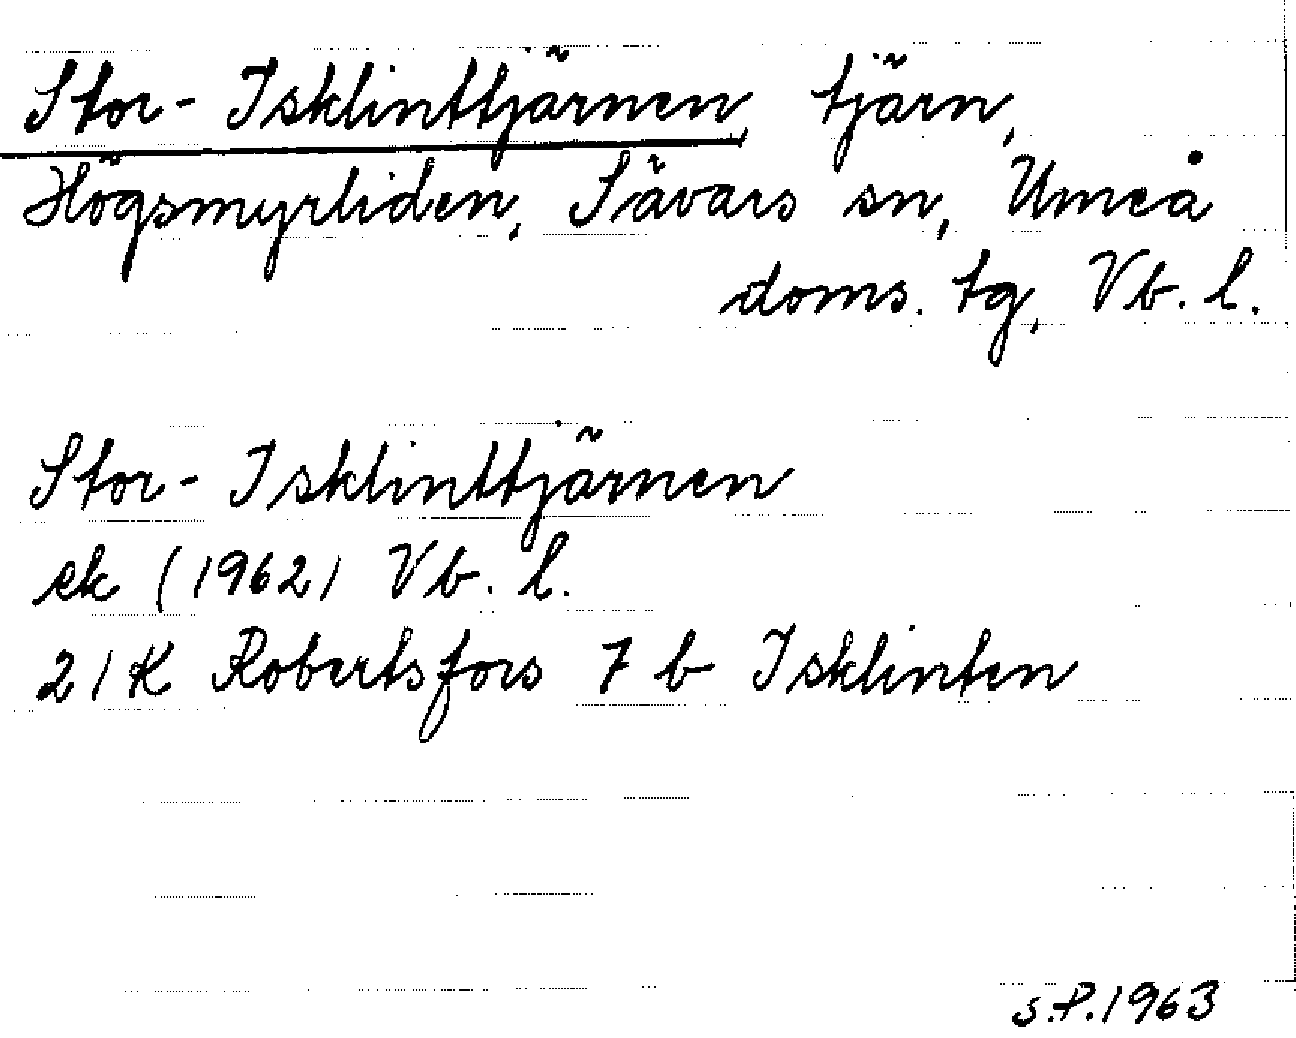 Stor-Isklinttjärnen, tjärn,
Högsmyrliden, Sävars sn, Umeå
doms. tg, Vb. l.
Stor-Isklinttjärnen
ek (1962) Vb. l.
21K Robertsfors 7 b Isklinten
S.P.1963